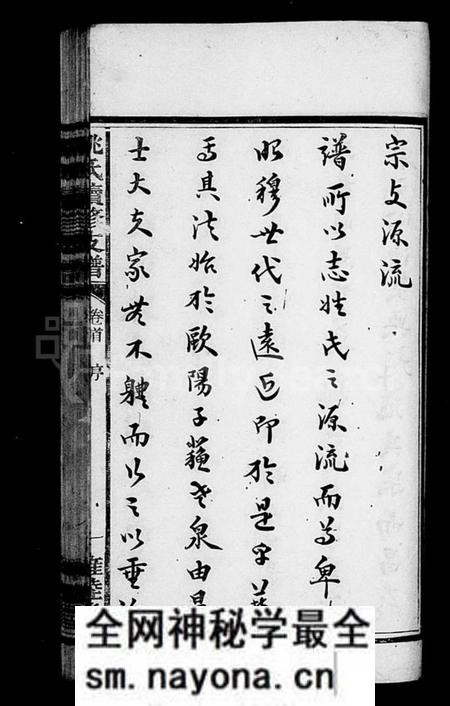 宗支源流
譜所以志姓氏之源流而尊卑
昭穆世代之遠近即於是乎
其法始於歐陽子蘇老泉由是
士大夫家無不體而行之以垂
姚氏續修支譜 卷首 序 一
全网神秘学最全
sm.nayona.cn